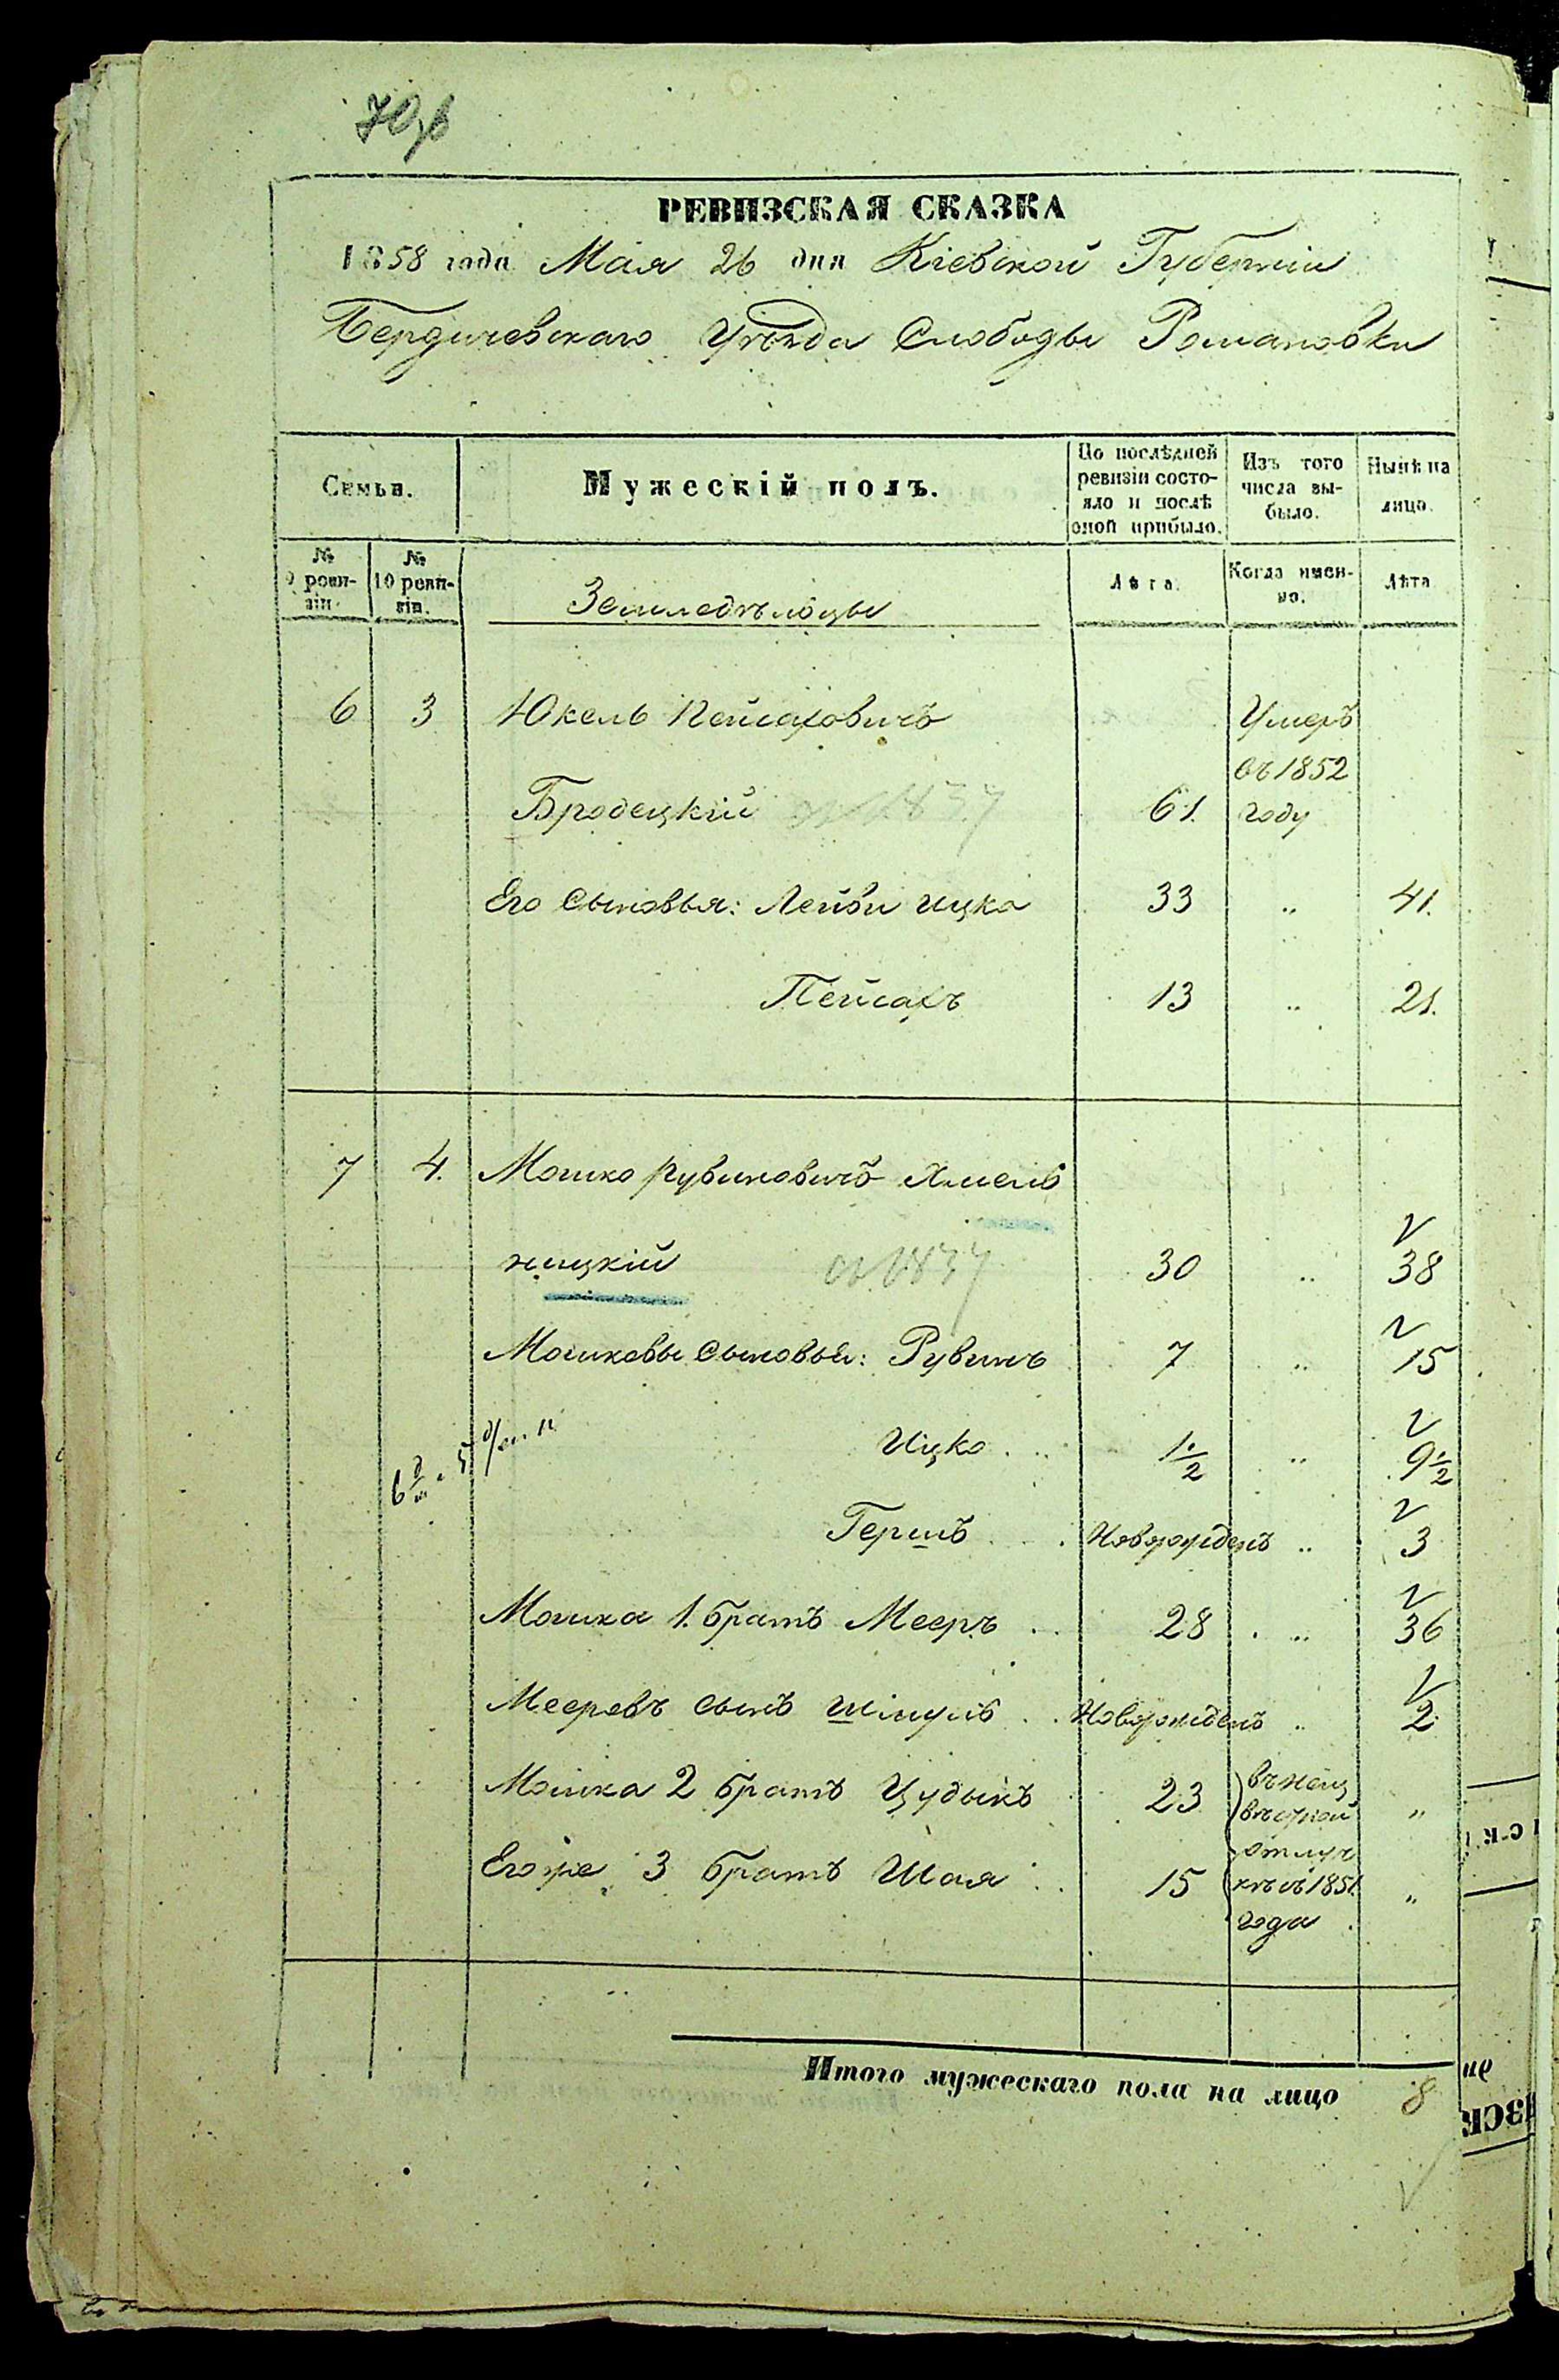 РЕВИЗСКАЯ СКАЗКА
1858 года Мая 26 дня Кіевской Губерніи
Бердичевскаго Уѣзда Слободы Романовки
Семьи.
Мужескій полъ.
По послѣдней ревизіи состояло и послѣ оной прибыло.
Изъ того числа выбыло.
Нынѣ на лицо.
№ 9 ревизіи.
№ 10 ревизіи.
Земледѣльцы
Лѣта.
Когда именно.
Лѣта
6 3 Юкель Пейсаховичъ Умеръ
въ 1852
Бродецкій съ 1837 61. году
Его сыновья: Лейби Ицка 33 „ 41.
Пейсахъ 13 „ 21.
7 4. Мошко Рувиновичъ Хмель
ницкій съ 1837 30 „ 38
Мошковы сыновья: Рувинъ 7 „ 15
Ицко 1 1/2 „ 9 1/2
Гершъ Новорожденъ „ 3
Мошка 1. братъ Мееръ 28 „ 36
Мееровъ сынъ Шмуль Новорожденъ „ 2
Мошка 2 братъ Цудыкъ 23 въ неиз
вѣстной „
отлуч
Его же 3 братъ Шая 15 кѣ съ 1851 „
года
Итого мужескаго пола на лицо 8